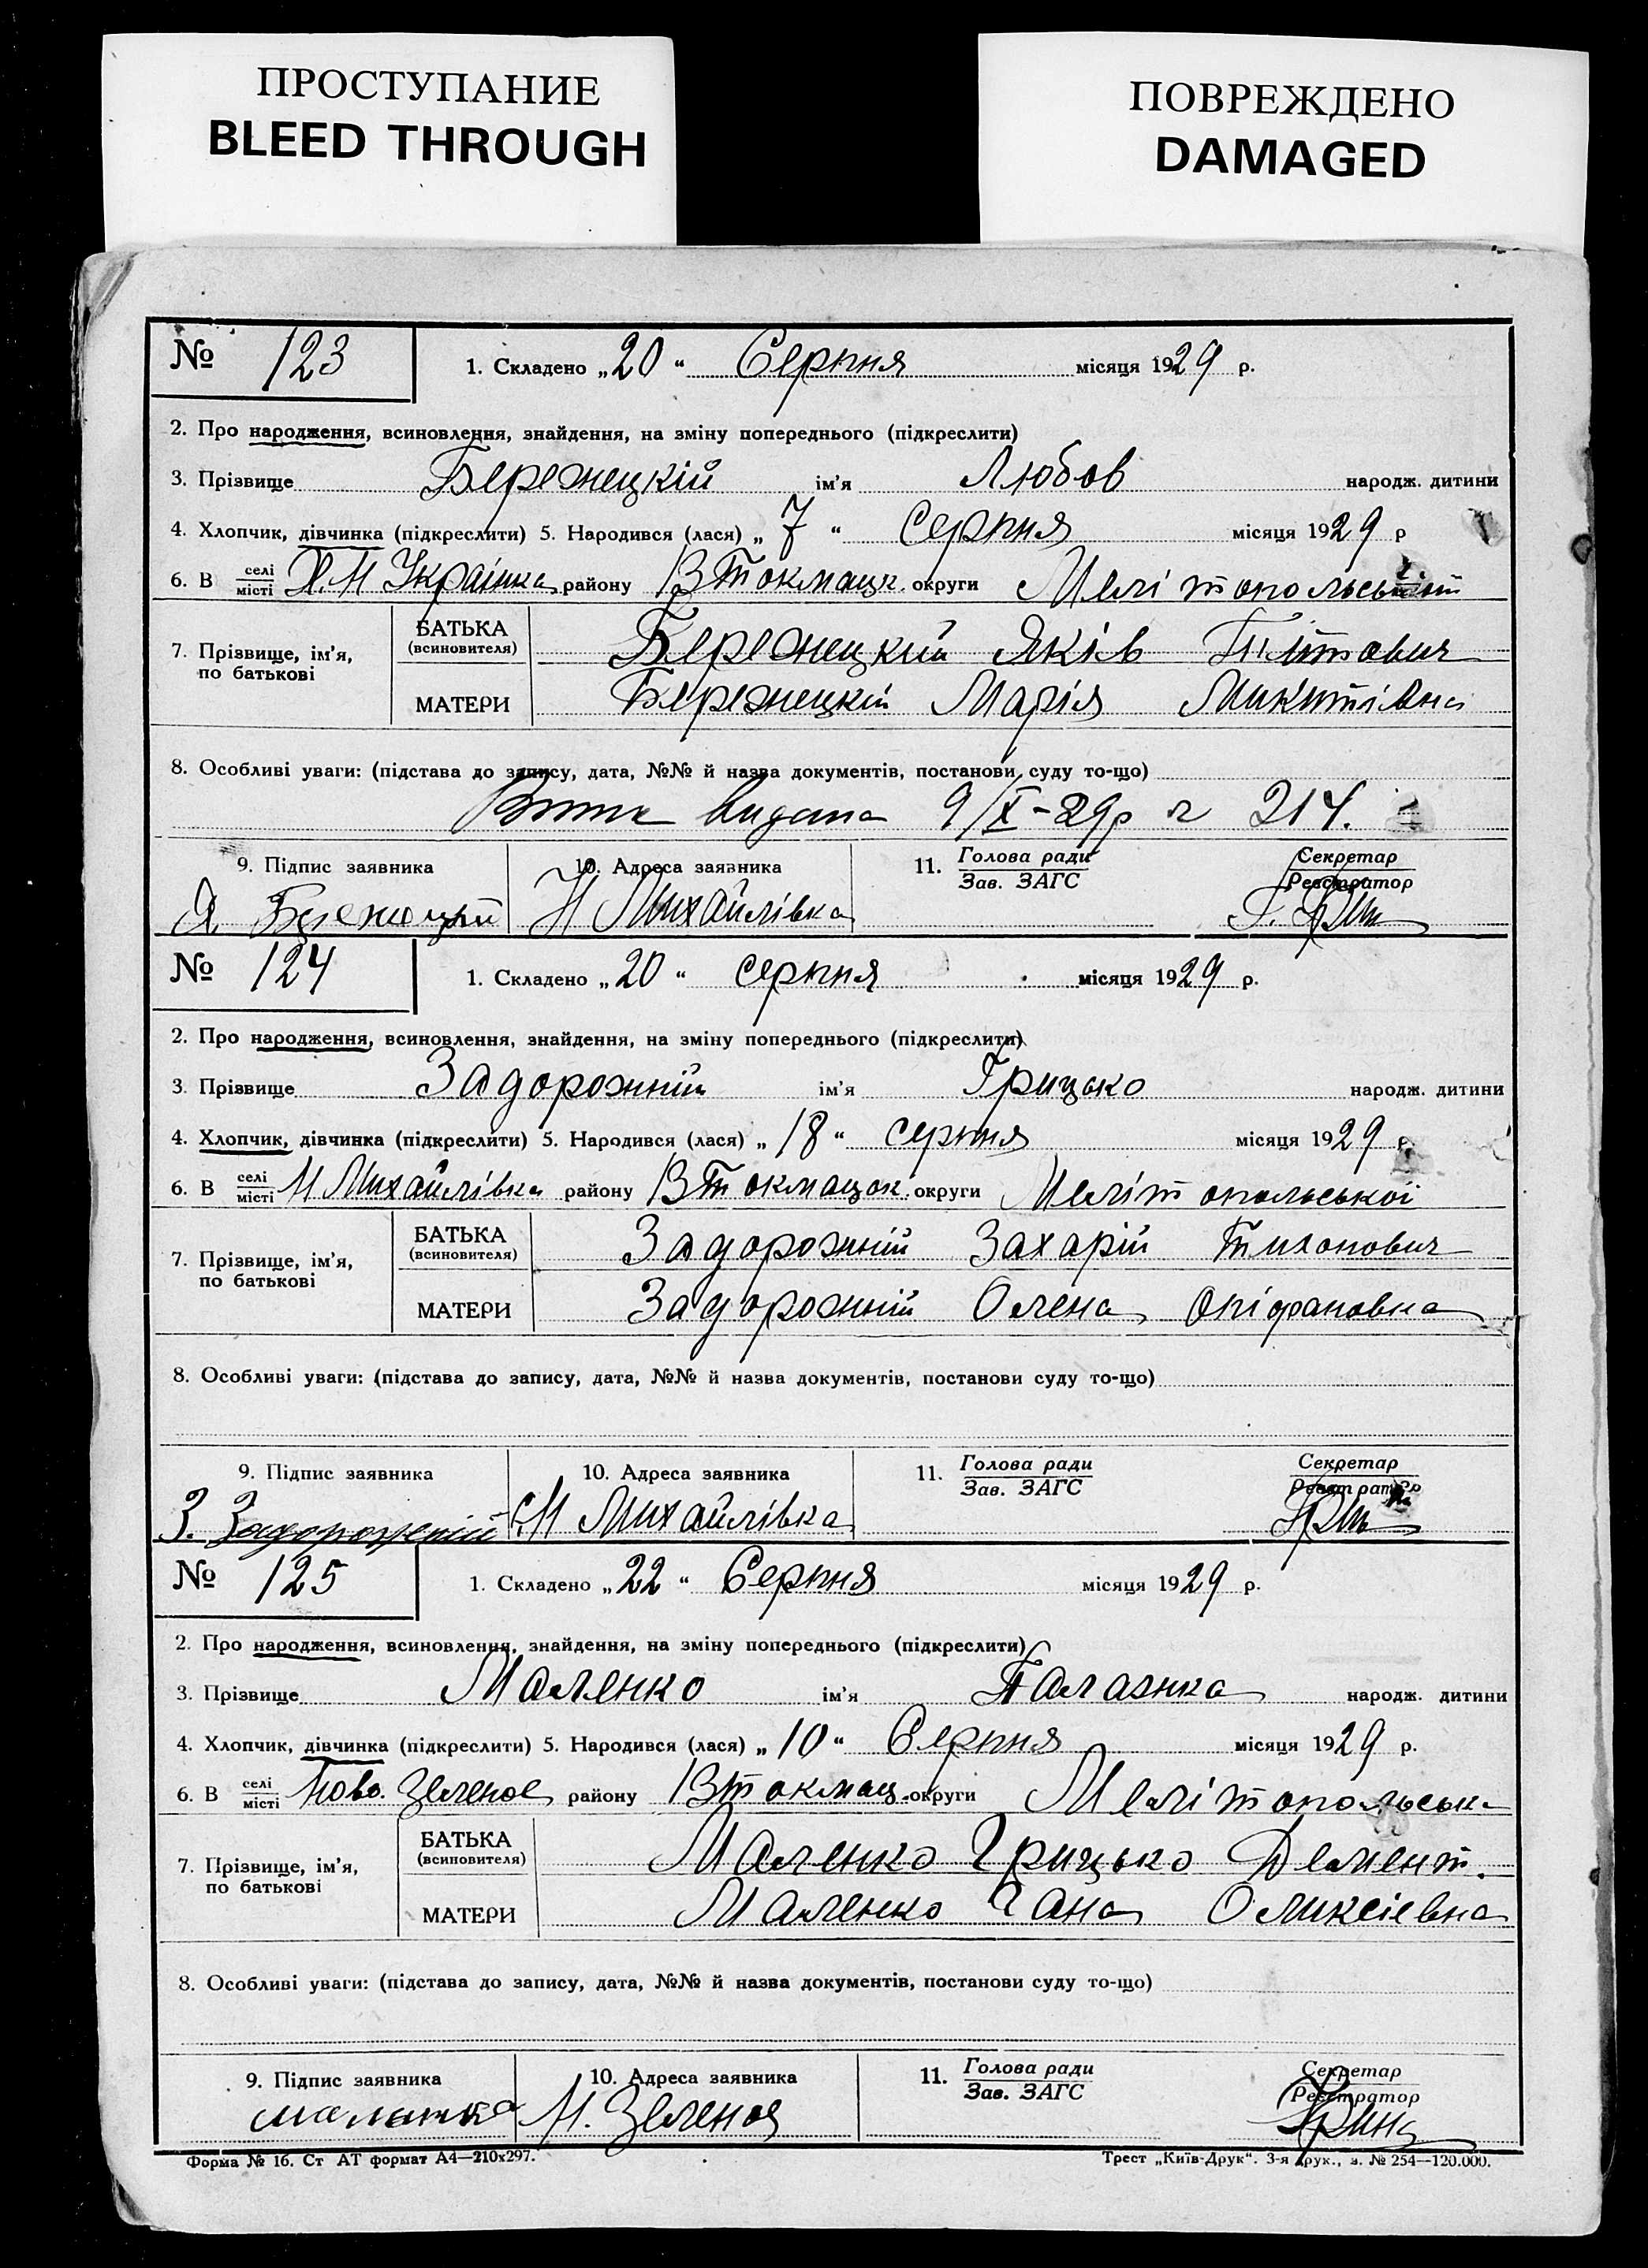 ПРОСТУПАНИЕ
BLEED THROUGH
ПОВРЕЖДЕНО
DAMAGED
№ 123 1. Складено „20“ Серпня місяця 1929 р.
2. Про народження, всиновлення, знайдення, на зміну попереднього (підкреслити)
3. Прізвище Бережецкій ім'я Любов народж. дитини
4. Хлопчик, дівчинка (підкреслити) 5. Народився (лася) „7“ Серпня місяця 1929 р
6. В селі/місті Х. Н Украінка району ВТокмацк. округи
7. Прізвище, ім'я, по батькові
БАТЬКА (всиновителя) Бережецкий Яків
МАТЕРИ Бережецкій Марія Микитівна
8. Особливі уваги: (підстава до запису, дата, №№ й назва документів, постанови суду то-що)
видана 9/X-29р 214.
9. Підпис заявника 10. Адреса заявника 11. Голова ради/Зав. ЗАГС Секретар/Реєстратор
Я Н Михайлівка
№ 124 1. Складено „20“ серпня місяця 1929 р.
2. Про народження, всиновлення, знайдення, на зміну попереднього (підкреслити)
3. Прізвище Задорожній ім'я Грицько народж. дитини
4. Хлопчик, дівчинка (підкреслити) 5. Народився (лася) „18“ серпня місяця 1929 р.
6. В селі/місті Н Михайлівка району ВТокмацок. округи Мелітопольської
7. Прізвище, ім'я, по батькові
БАТЬКА (всиновителя) Задорожній Захарій Тихонович
МАТЕРИ Задорожній Олена Опіфановна
8. Особливі уваги: (підстава до запису, дата, №№ й назва документів, постанови суду то-що)
9. Підпис заявника 10. Адреса заявника 11. Голова ради/Зав. ЗАГС Секретар/Реєстратор
З. Задорожній с. Н Михайлівка
№ 125 1. Складено „22“ Серпня місяця 1929 р.
2. Про народження, всиновлення, знайдення, на зміну попереднього (підкреслити)
3. Прізвище Маленко ім'я Палажка народж. дитини
4. Хлопчик, дівчинка (підкреслити) 5. Народився (лася) „10“ Серпня місяця 1929 р.
6. В селі/місті Ново. Зеленое району ВТокмац. округи Мелітопольськ
7. Прізвище, ім'я, по батькові
БАТЬКА (всиновителя) Маленко Грицько Демент.
МАТЕРИ Маленко Гана Оликсіевна
8. Особливі уваги: (підстава до запису, дата, №№ й назва документів, постанови суду то-що)
9. Підпис заявника 10. Адреса заявника 11. Голова ради/Зав. ЗАГС Секретар/Реєстратор
Н. Зеленое
Форма № 16. Ст АТ формат А4—210х297. Трест „Київ-Друк“. 3-я друк., з. № 254—120.000.